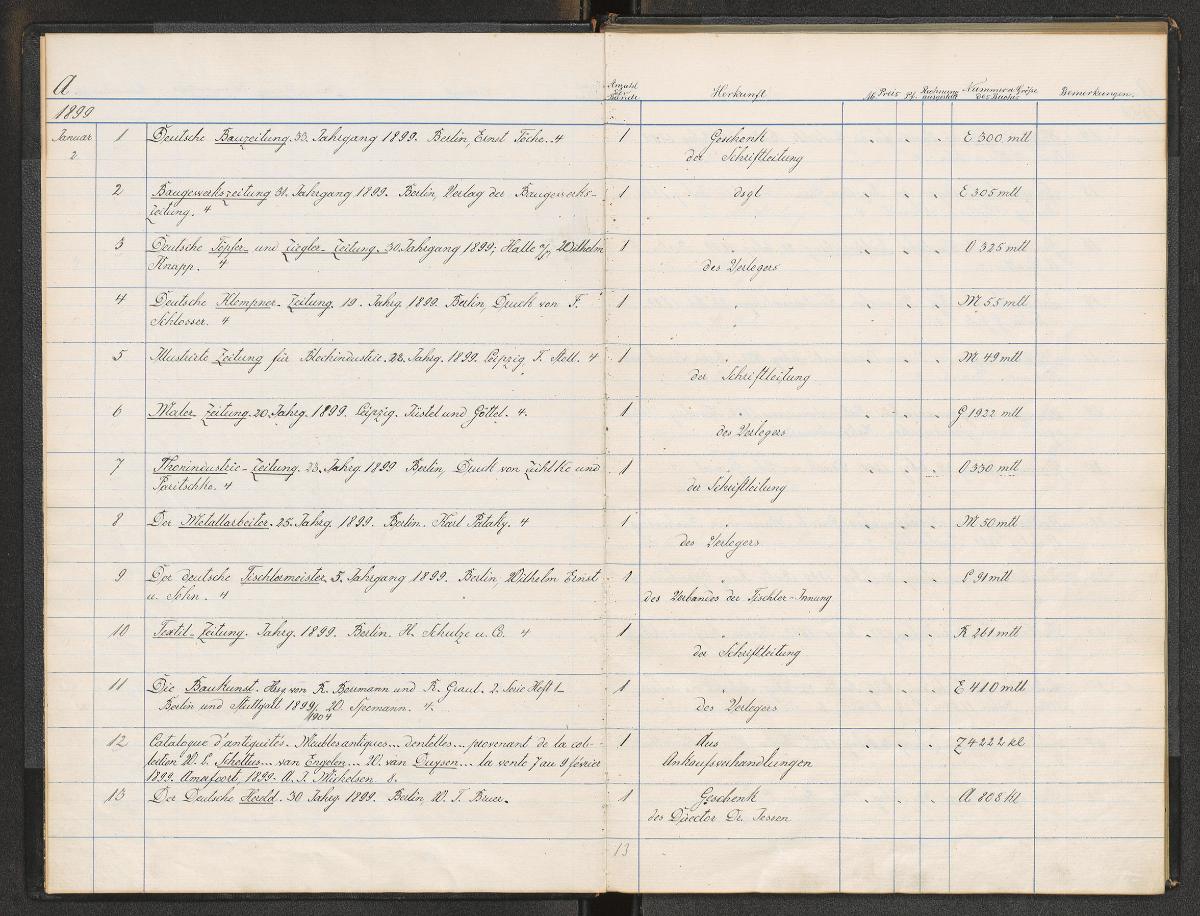 A.
Anzahl der Bände Herkunft M. Preis Pf. Rechnung ausgestellt Nummer u. Größe des Buches Bemerkungen.
1899
Januar 1 Deutsche Bauzeitung. 33. Jahrgang 1899. Berlin, Ernst Töche. 4 1 Geschenk E 300 mtl
2 der Schriftleitung
2 Baugewerkszeitung 31. Jahrgang 1899. Berlin, Verlag der Baugewerks- 1 dsgl E 305 mtl
zeitung. 4
3 Deutsche Töpfer- und Ziegler-Zeitung. 30. Jahrgang 1899; Halle a/S, Wilhelm 1 " O 325 mtl
Knapp. 4 des Verlegers
4 Deutsche Klempner-Zeitung. 19. Jahrg. 1899. Berlin, Druck von F. 1 " M 55 mtl
Schlosser. 4 "
5 Illustrirte Zeitung für Blechindustrie. 28. Jahrg. 1899. Leipzig, F. Stoll. 4 1 " M 49 mtl
der Schriftleitung
6 Maler Zeitung. 20. Jahrg. 1899. Leipzig. Jüstel und Göttel. 4. 1 " G 1922 mtl
des Verlegers
7 Thonindustrie-Zeitung. 23. Jahrg. 1899 Berlin, Druck von und 1 " O 330 mtl
Paritschke. 4 der Schriftleitung
8 Der Metallarbeiter. 25. Jahrg. 1899. Berlin. Karl Pataky. 4 1 " M 50 mtl
des Verlegers
9 Der deutsche Tischlermeister. 5. Jahrgang 1899. Berlin, Wilhelm Ernst 1 " P 91 mtl
u. Sohn. 4 des Verbandes der Tischler-Innung
10 Textil-Zeitung. Jahrg. 1899. Berlin. H. Schulze u. Co. 4 1 " R 261 mtl
der Schriftleitung
11 Die Baukunst. Hrsg von R. Borrmann und R. Graul. 2. Serie Heft 1_ 1 " E 410 mtl
Berlin und Stuttgart 1899/1904 W. Spemann. 4. des Verlegers
12 Catalogue d'antiquités. Meubles antiques... dentelles... provenant de la col- 1 Aus Z 4222 kl
lection W. E. Scheltus... van Engelen... W. van Duysen... la vente 7 au 9 février Ankaufsverhandlungen
1899. Amsfoort 1899. A. J. Michelsen 8.
13 Der Deutsche Herold. 30 Jahrg 1899. Berlin, W. T. Bruer. 1 Geschenk A 808 kl
des Director Dr. Jessen
13